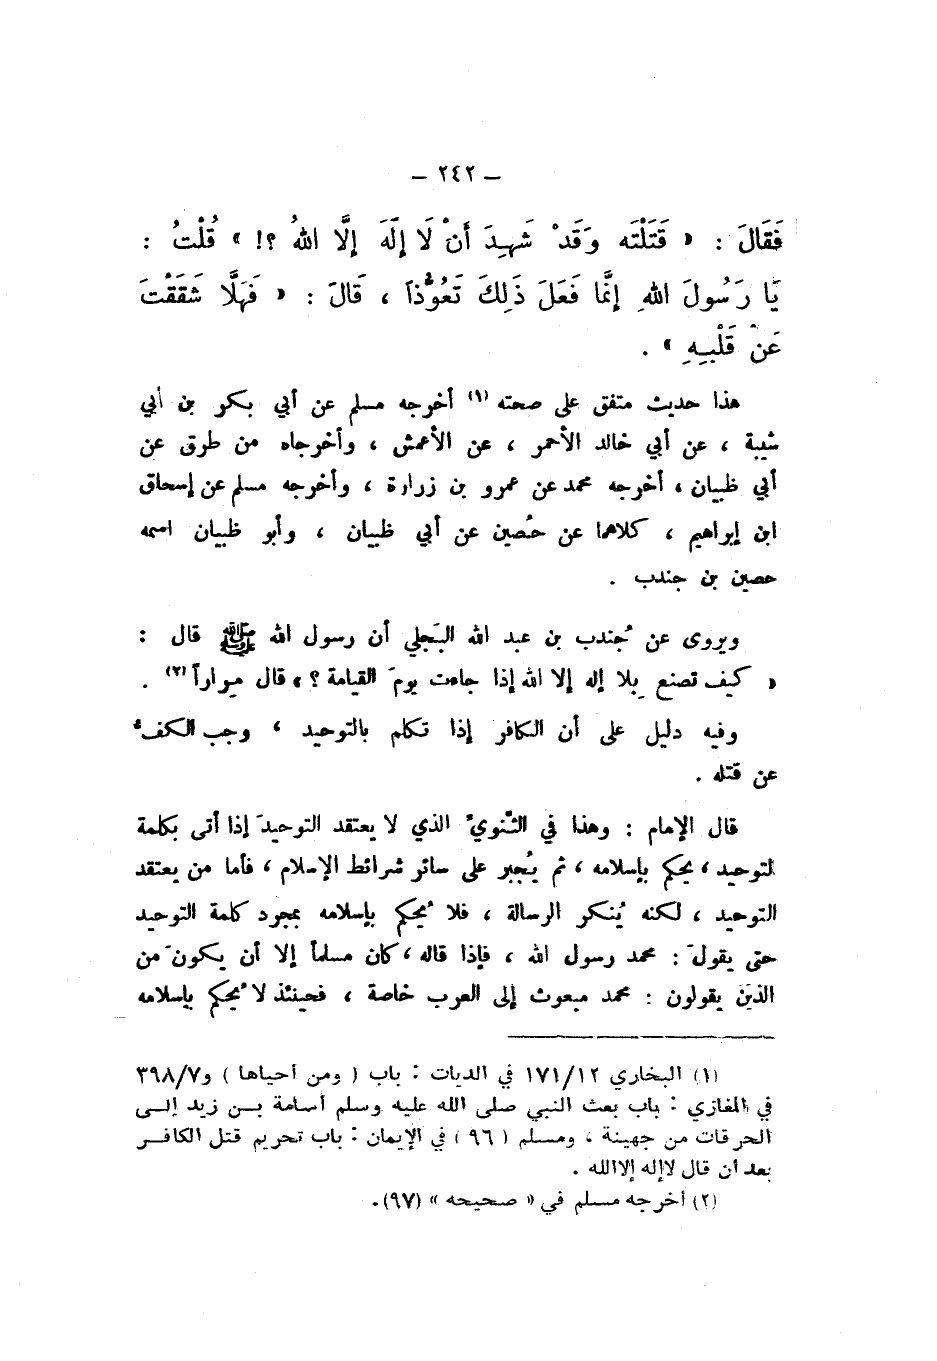 – ٢٤٢ –
فَقَالَ : « قَتَلْتَه وَقَدْ شَهِدَ أَنْ لَا إِلَهَ إِلَّا اللهُ ؟! » قُلْتُ :
يَا رَسُولَ اللهِ إِنَّمَا فَعَلَ ذَلِكَ تَعَوُّذاً ، قَالَ : « فَهَلَّا شَقَقْتَ
عَنْ قَلْبِهِ » .
هذا حديث متفق على صحته (١) أخرجه مسلم عن أبي بكر بن أبي
شيبة ، عن أبي خالد الأحمر ، عن الأعمش ، وأخرجاه من طرق عن
أبي ظبيان ، أخرجه محمد عن عمرو بن زرارة ، وأخرجه مسلم عن إسحاق
ابن إبراهيم ، كلاهما عن حُصين عن أبي ظبيان ، وأبو ظبيان اسمه
حصين بن جندب .
ويروى عن جُندب بن عبد الله البَجلي أن رسول الله ﷺ قال :
« كيف تصنع بِلا إله إلا الله إذا جاءت يومَ القيامة ؟ » قال مِراراً (٢) .
وفيه دليل على أن الكافر إذا تكلم بالتوحيد ، وجب الكفُّ
عن قتله .
قال الإمام : وهذا في الثَّنويِّ الذي لا يعتقد التوحيدَ إذا أتى بكلمة
لتوحيد ، يحكم بإسلامه ، ثم يُجبر على سائر شرائط الإسلام ، فأما من يعتقد
التوحيد ، لكنه يُنكر الرسالة ، فلا يُحكم بإسلامه بمجرد كلمة التوحيد
حتى يقولَ : محمد رسول الله ، فإذا قاله ، كان مسلماً إلا أن يكونَ من
الذين يقولون : محمد مبعوث إلى العرب خاصة ، فحينئذ لا يُحكم بإسلامه
(١) البخاري ١٧١/١٢ في الديات : باب ( ومن أحياها ) و٣٩٨/٧
في المغازي : باب بعث النبي صلى الله عليه وسلم أسامة بن زيد إلى
الحرقات من جهينة ، ومسلم ( ٩٦ ) في الإيمان : باب تحريم قتل الكافر
بعد أن قال لاإله إلاالله .
(٢) أخرجه مسلم في « صحيحه » (٩٧) .